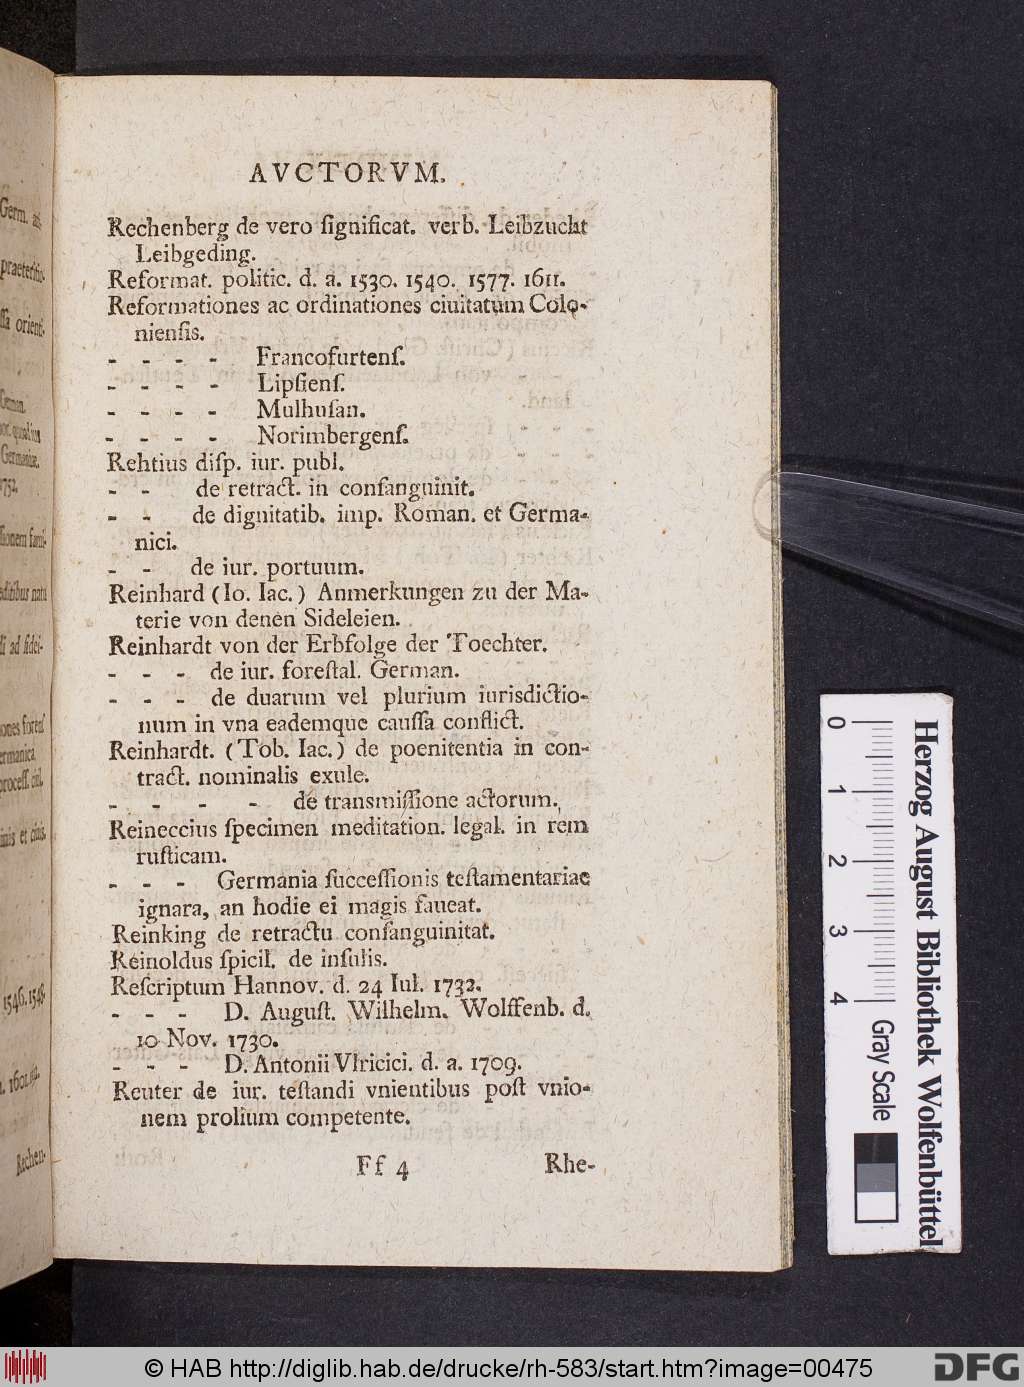 AVCTORVM.
Rechenberg de vero ſignificat. verb. Leibzucht
Leibgeding.
Reformat. politic. d. a. 1530. 1540. 1577. 1611.
Reformationes ac ordinationes ciuitatum Colo-
nienſis.
- - - - Francofurtenſ.
- - - - Lipſienſ.
- - - - Mulhuſan.
- - - - Norimbergenſ.
Rehtius diſp. iur. publ.
- - de retract. in conſanguinit.
- - de dignitatib. imp. Roman. et Germa-
nici.
- - de iur. portuum.
Reinhard (Io. Iac.) Anmerkungen zu der Ma-
terie von denen Sideleien.
Reinhardt von der Erbfolge der Toechter.
- - - de iur. foreſtal. German.
- - - de duarum vel plurium iurisdictio-
num in vna eademque cauſſa conflict.
Reinhardt. (Tob. Iac.) de poenitentia in con-
tract. nominalis exule.
- - - - de transmiſſione actorum.
Reineccius ſpecimen meditation. legal. in rem
ruſticam.
- - - Germania ſucceſſionis teſtamentariae
ignara, an hodie ei magis faueat.
Reinking de retractu conſanguinitat.
Reinoldus ſpicil. de inſulis.
Reſcriptum Hannov. d. 24 Iul. 1732.
- - - D. Auguſt. Wilhelm. Wolffenb. d.
10 Nov. 1730.
- - - D. Antonii Vlricici. d. a. 1709.
Reuter de iur. teſtandi vnientibus poſt vnio-
nem prolium competente.
Ff 4 Rhe-
Germ. ad.
praeteritio.
ſſa orient.
German.
Germaniae.
1752.
ſſionem fami-
editibus natu
di ad fidei-
ermanica.
proceſſ. ciuil.
1546. 1548.
Rechen-
0 1 2 3 4
Herzog August Bibliothek Wolfenbüttel
Gray Scale
© HAB http://diglib.hab.de/drucke/rh-583/start.htm?image=00475
DFG